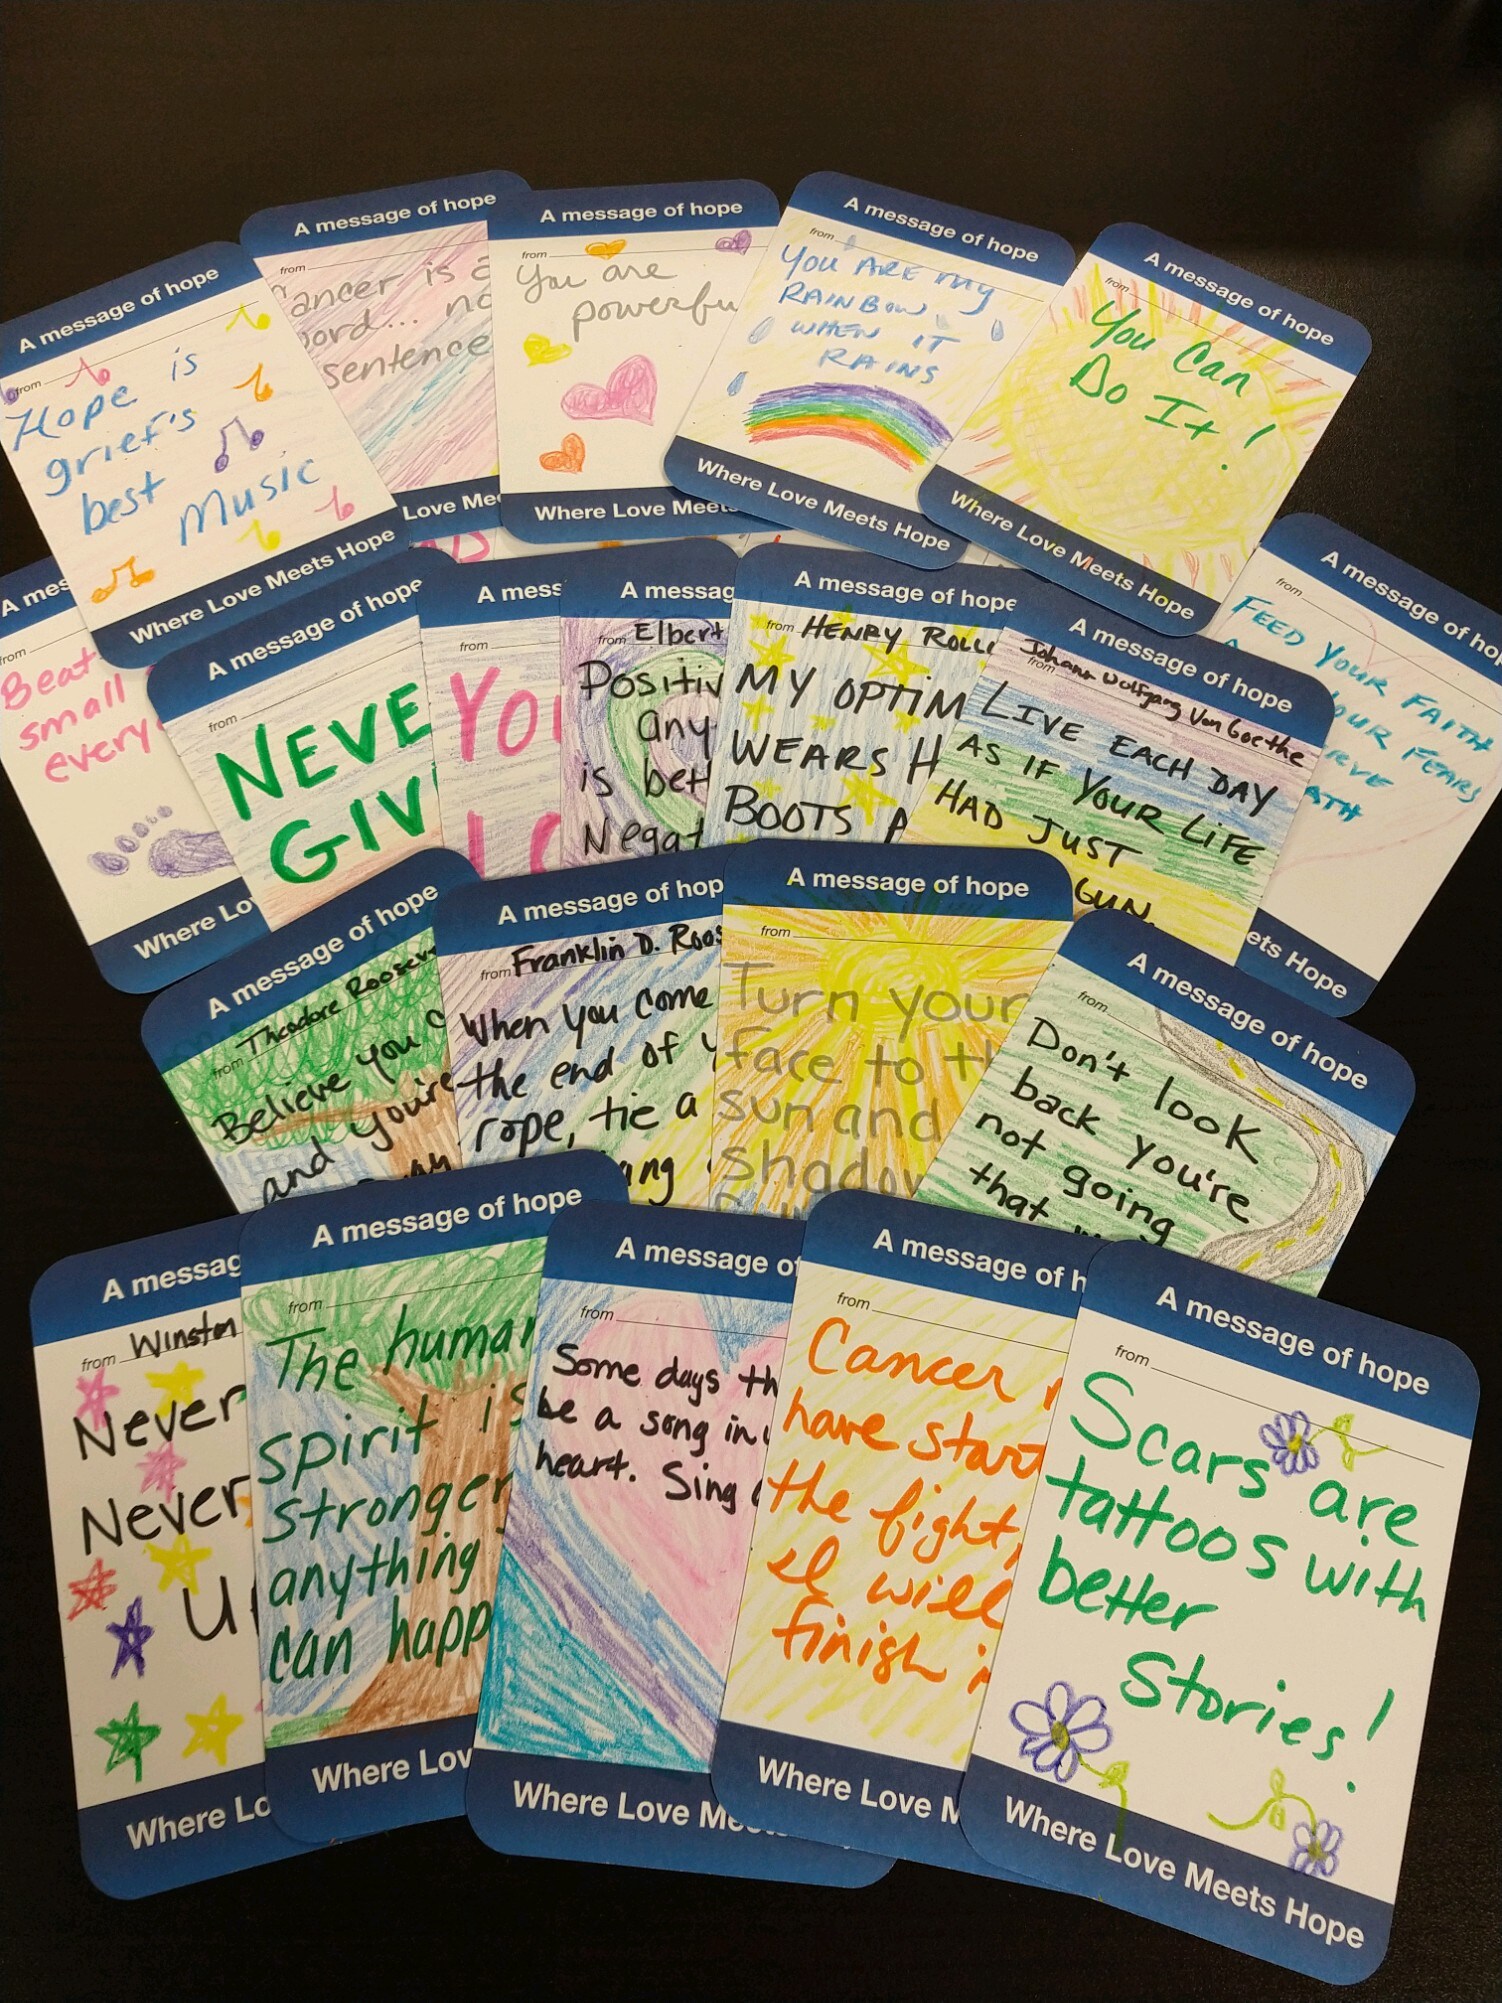 A message of hope
from
Hope is
grief's
best
music
Where Love Meets Hope
A message of hope
from
ancer is a
ord... no
sentence
Love Me
A message of hope
from
You are
powerfu
Where Love Meets
A message of hope
from
You ARE my
RAINBOW
WHEN IT
RAINS
Where Love Meets Hope
A message of hope
from
You Can
Do It!
Where Love Meets Hope
A mes
from
Beat
small
every
Where Lo
A message of hope
from
NEVE
GIV
A mess
from
YO
A messag
from Elbert
Positiv
any
is bet
Negat
A message of hope
from HENRY ROLL
MY OPTIM
WEARS H
BOOTS A
A message of hope
Johann Wolfgang Von Goethe
from
LIVE EACH DAY
AS IF YOUR LIFE
HAD JUST
GUN
A message of hop
from
FEED YOUR FAITH
OUR FEARS
RVE
ATH
ets Hope
A message of hope
from Theodore Roosev
Believe you c
and you're
A message of hop
from Franklin D. Roos
When you come
the end of y
rope, tie a
ang
A message of hope
from
Turn your
face to th
sun and
shadow
A message of hope
from
Don't look
back you're
not going
that
A messag
from Winston
Never
Never
U
Where Lo
A message of hope
from
The human
spirit is
stronger
anything
can happ
Where Lov
A message o
from
Some days th
be a song in
heart. Sing
Where Love Meets
A message of h
from
Cancer
have start
the fight,
I will
finish i
Where Love M
A message of hope
from
Scars are
tattoos with
better
stories!
Where Love Meets Hope